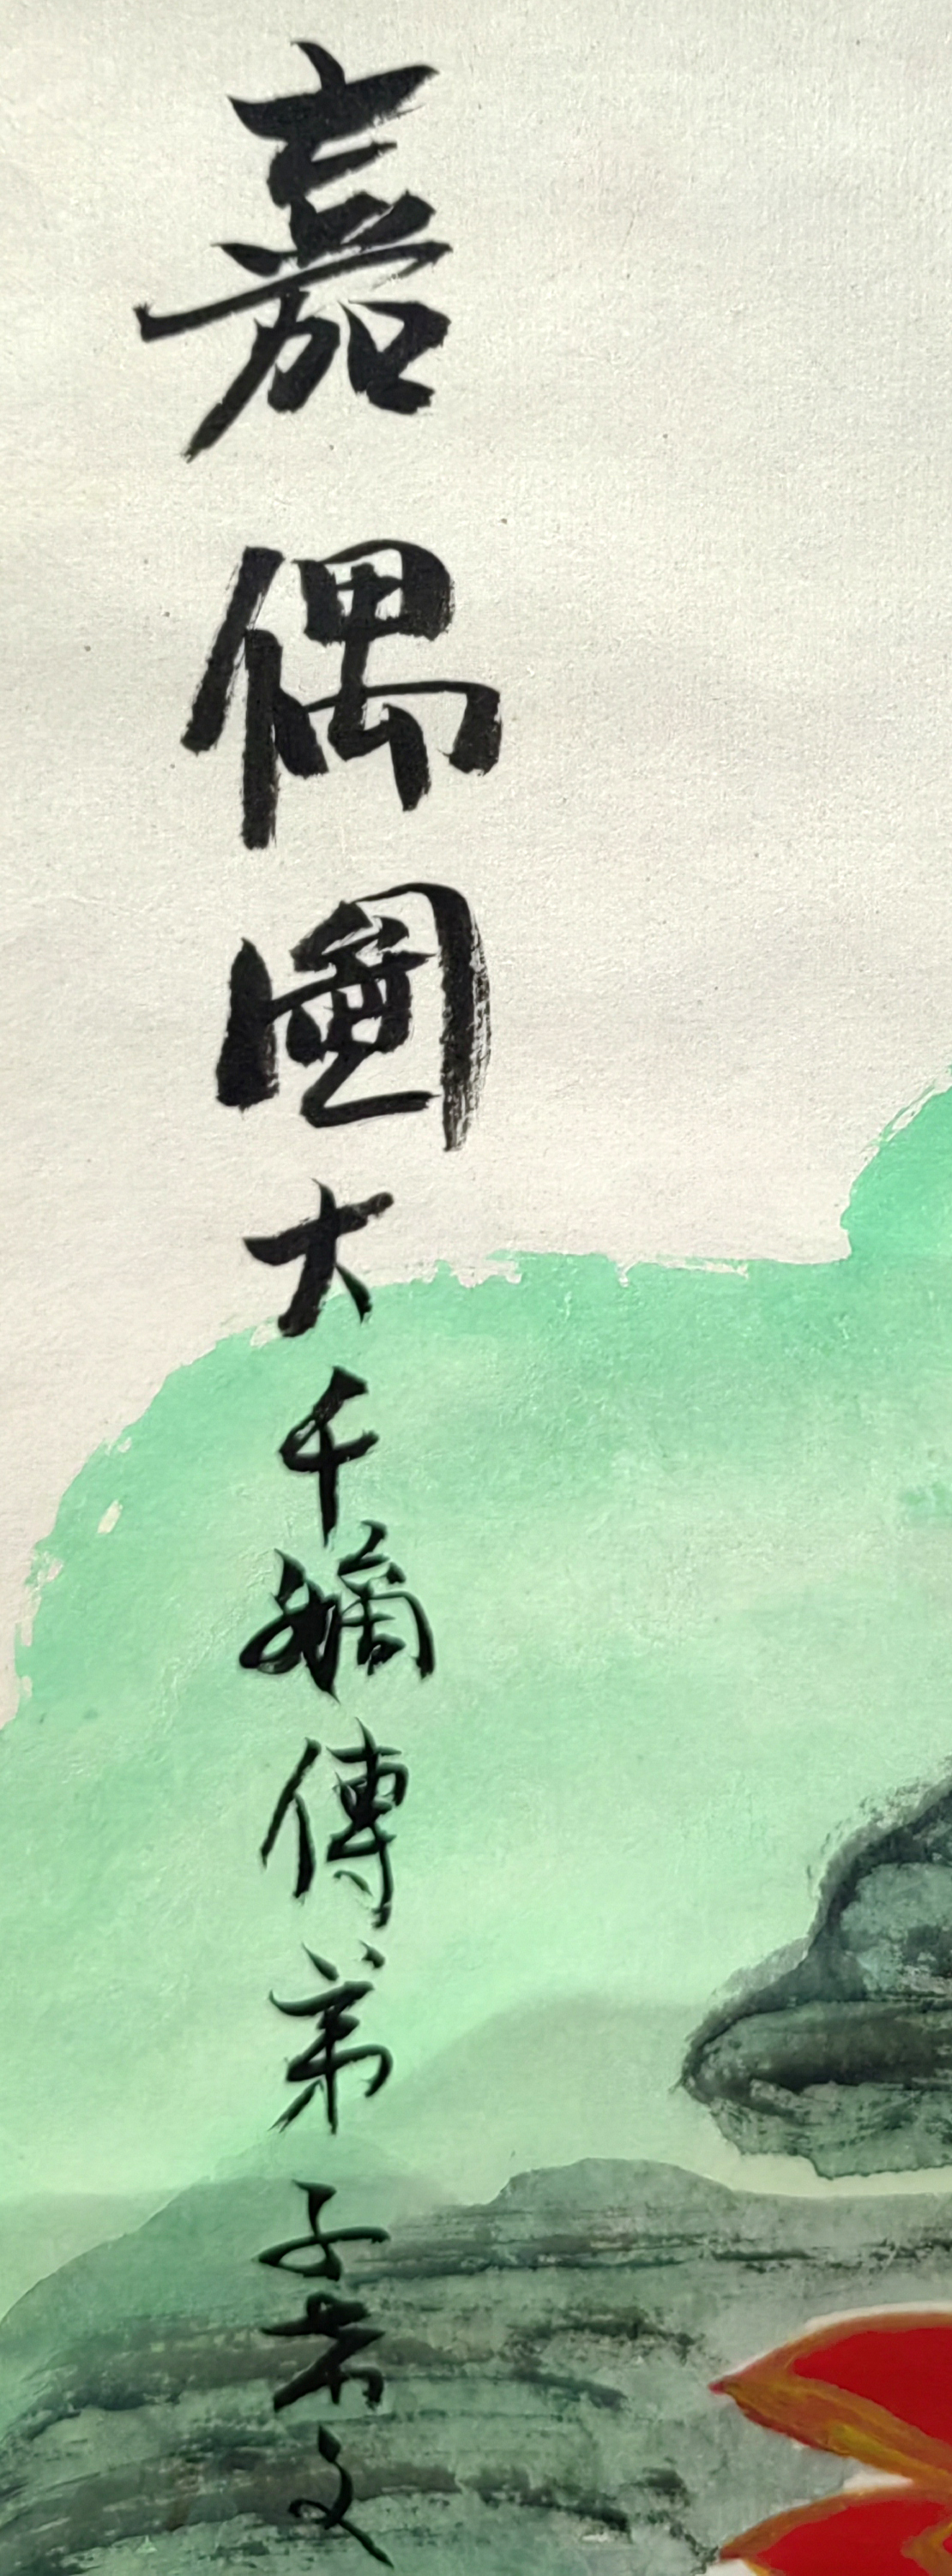 嘉偶圖大千嫡傳弟子赤文